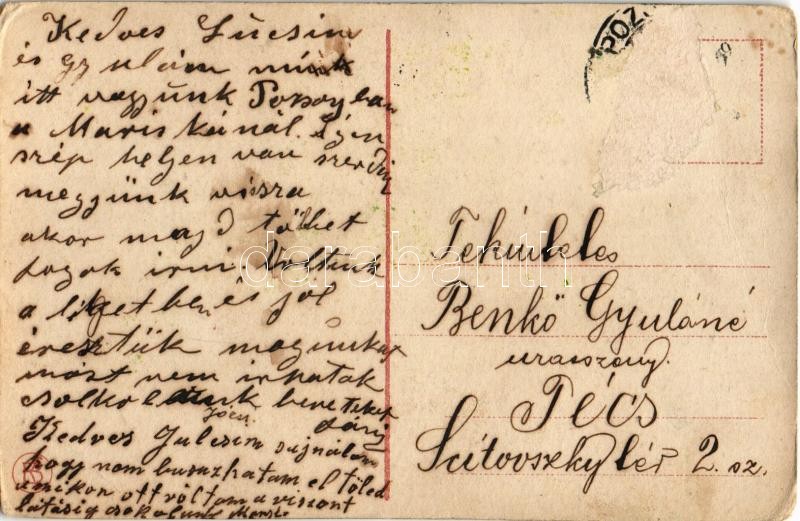 Kedves Lucsim
és Gyulám mink
itt vagyunk Pozsonyban
a Mariskánál. Igen
szép helyen van szerdán
megyünk vissza
akor majd többet
fogok irni Voltunk
a ligetben és jól
éreztük magunkat
most nem irhatok
csolkolunk beneteket
Kedves Julcsim sajnálom
hogy nem bucuzhatam el töled
ott vóltam a viszont
látásig csokolunk
POZ
Tekintetes
Benkő Gyuláné
uraszony
Pécs
Scitovszky tér 2. sz.
darabanth